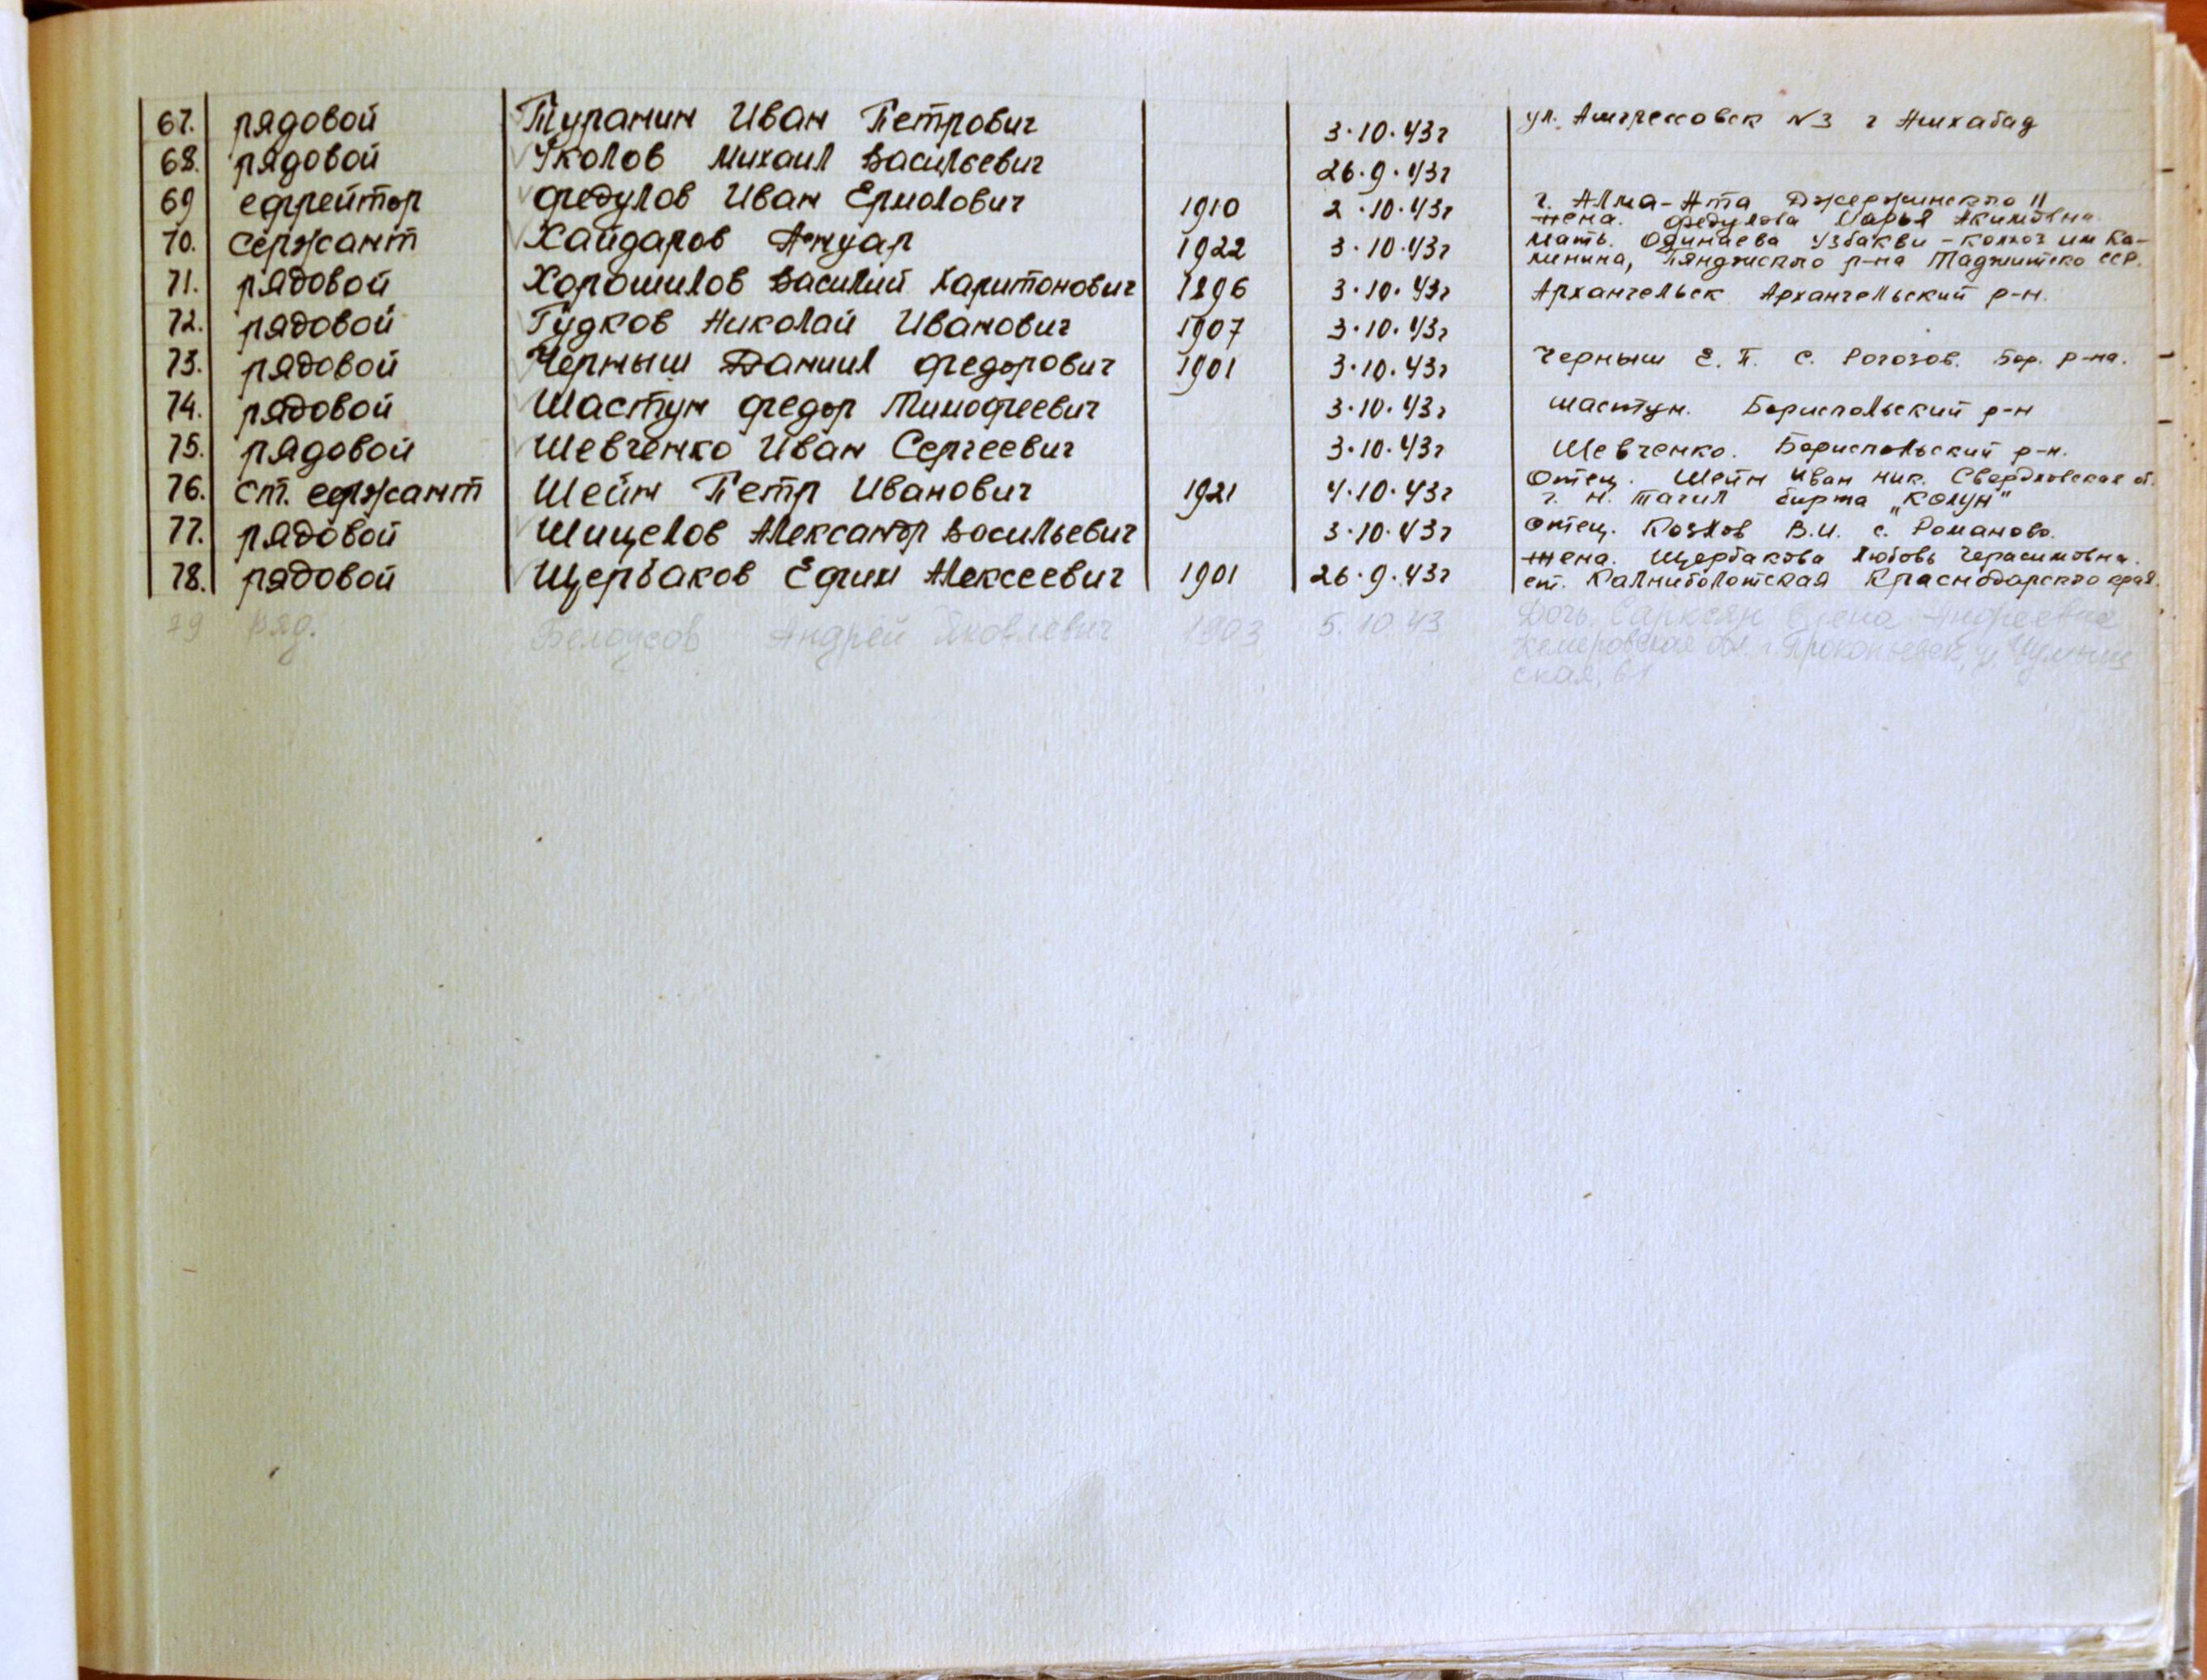 67. рядовой Туранин Иван Петрович 3.10.43г ул. №3 г Ашхабад
68. рядовой Уколов Михаил Васильевич 26.9.43г
69 ефрейтор Федулов Иван Ермолович 1910 2.10.43г г. Алма-Ата Джержинского 11
жена. Федулова Марья Акимовна.
70. сержант Хайдаров Ануар 1922 3.10.43г Мать. Одинаева Узбакви - колхоз им Ка-
линина, Пянджского р-на Таджитско ССР.
71. рядовой Хорошилов Василий Харитонович 1896 3.10.43г Архангельск Архангельский р-н.
72. рядовой Гудков Николай Иванович 1907 3.10.43г
73. рядовой Черныш Даниил Федорович 1901 3.10.43г Черныш Е. П. С. Рогозов. Бор. р-на.
74. рядовой Шастун Федор Тимофеевич 3.10.43г Шастун. Бориспольский р-н
75. рядовой Шевченко Иван Сергеевич 3.10.43г Шевченко. Бориспольский р-н.
76. ст. сержант Шейн Петр Иванович 1921 4.10.43г Отец. Шейн Иван Ник. Свердловская об.
г. Н. Тагил биржа „Колун"
77. рядовой Шицелов Александр Васильевич 3.10.43г Отец. Козлов В.И. с. Романово.
78. рядовой Щербаков Ефим Алексеевич 1901 26.9.43г жена. Щербакова Любовь Герасимовна.
ст. Калниболотская Краснодарского края.
79 ряд. Белоусов Андрей Яковлевич 1903 5.10.43 Дочь Сарксян Елена Андреевна
Кемеровская обл. г. Прокопьевск, ул. Чумыш
ская, 61